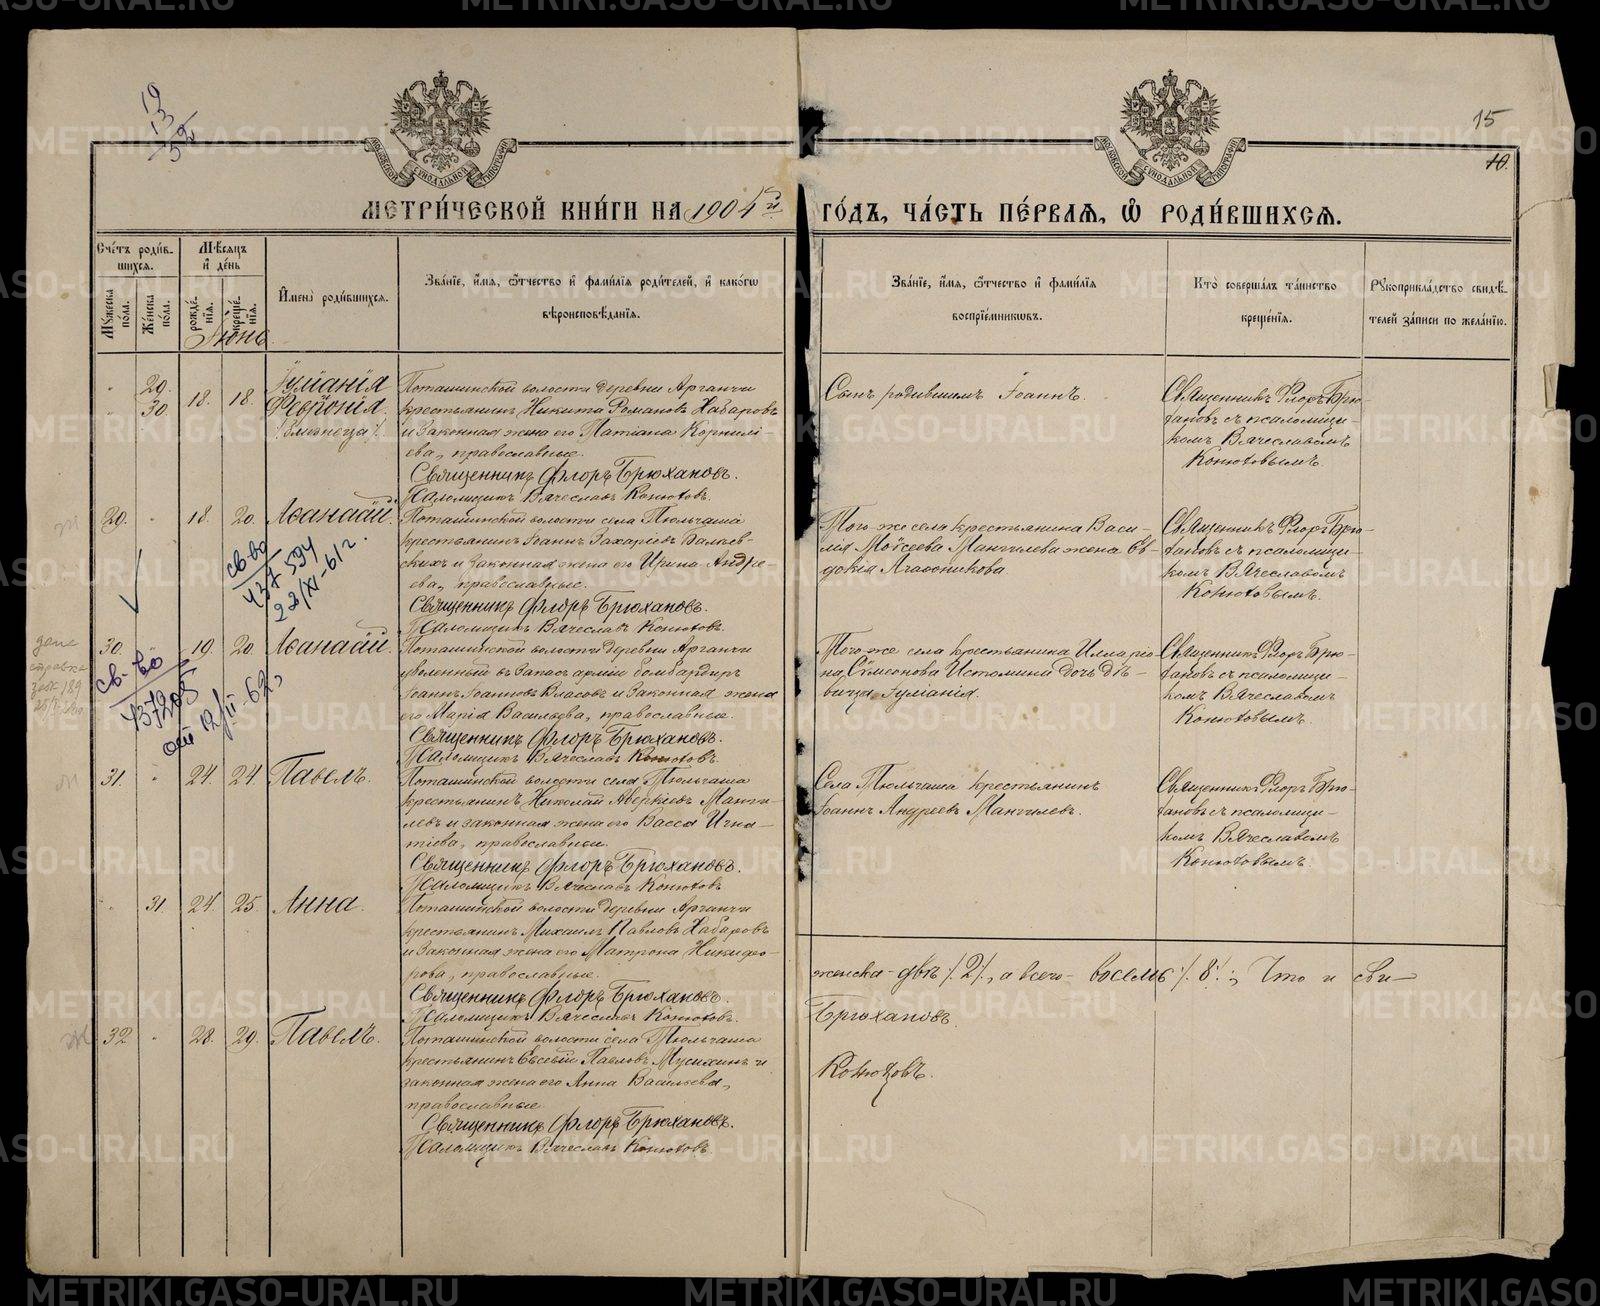 15
10.
МЕТРИ́ЧЕСКОЙ КНИ́ГИ НА 1904й ГО́ДЪ, ЧА́СТЬ ПЕ́РВАЯ, Ѡ҆ РОДИ́ВШИХСЯ.
Сче́тъ роди́в-
шихся.
Му́жеска по́ла.
Же́нска по́ла.
Мѣ́сяцъ и҆ де́нь
рожде́нїя.
креще́нїя.
И҆мена̀ роди́вшихся.
Зва́нїе, и҆́мя, ѻ҆́тчество и҆ фами́лїя роди́телей, и҆ како́гѡ
вѣроисповѣ́данїя.
Зва́нїе, и҆́мя, ѻ҆́тчество и҆ фами́лїя
воспрїе́мникѡвъ.
Кто̀ соверша́лъ та́инство
креще́нїя.
Рꙋкоприкла́дство свидѣ́-
телей за́писи по жела́нїю.
Іюнь
29.
30.
18.
18.
Іуліанія
Феѵронія
/Близнецы/.
Поташинской волости деревни Арганчи
крестьянинъ Никита Романовъ Хабаровъ
и законная жена его Татіана Корнилі-
ева, православные.
Священникъ Флоръ Брюхановъ.
Псаломщикъ Вячеславъ Конюховъ.
Сынъ родившихъ Іоаннъ.
Священникъ Флоръ Брю-
хановъ съ псаломщи-
комъ Вячеславомъ
Конюховымъ.
29.
18.
20.
Аѳанасій.
Поташинской волости села Тюльгаша
крестьянинъ Іоаннъ Захаріевъ
скихъ и законная жена его Ирина Андре-
ева, православные.
Священникъ Флоръ Брюхановъ.
Псаломщикъ Вячеславъ Конюховъ.
Того-же села крестьянина Васи-
лія Моѵсеева Мангилева жена Ев-
докія Агафоникова.
Священникъ Флоръ Брю-
хановъ съ псаломщи-
комъ Вячеславомъ
Конюховымъ.
св-во
437594
22/XI-61г.
30.
19.
20.
Аѳанасій.
Поташинской волости деревни Арганчи
уволенный въ запасъ арміи бомбардиръ
Іоаннъ Іоанновъ Власовъ и законная жена
его Марія Васильева, православные.
Священникъ Флоръ Брюхановъ.
Псаломщикъ Вячеславъ Конюховъ.
Того-же села крестьянина Иларіо-
на Сѵмеонова Истомина дочь дѣ-
вица Іуліанія.
Священникъ Флоръ Брю-
хановъ съ псаломщи-
комъ Вячеславомъ
Конюховымъ.
св-во
от 12/II-62г
31.
24.
24
Павелъ.
Поташинской волости села Тюльгаша
крестьянинъ Николай Аверкіевъ Манги-
левъ и законная жена его Васса Игна-
тіева, православные.
Священникъ Флоръ Брюхановъ.
Псаломщикъ Вячеславъ Конюховъ
Села Тюльгаша крестьянинъ
Іоаннъ Андреевъ Мангилевъ.
Священникъ Флоръ Брю-
хановъ съ псаломщи-
комъ Вячеславомъ
Конюховымъ.
31.
24.
25.
Анна.
Поташинской волости деревни Арганчи
крестьянинъ Михаилъ Павловъ Хабаровъ
и законная жена его Матрона Никифо-
рова, православные.
Священникъ Флоръ Брюхановъ.
Псаломщикъ Вячеславъ Конюховъ.
женска-двѣ /2/, а всего- восемь /8/; Что и сви-
Брюхановъ.
Конюховъ.
32
28.
29.
Павелъ.
Поташинской волости села Тюльгаша
крестьянинъ Евсевій Павловъ Мусихинъ и
законная жена его Анна Васильева,
православные
Священникъ Флоръ Брюхановъ.
Псаломщикъ Вячеславъ Конюховъ.
METRIKI.GASO-URAL.RU